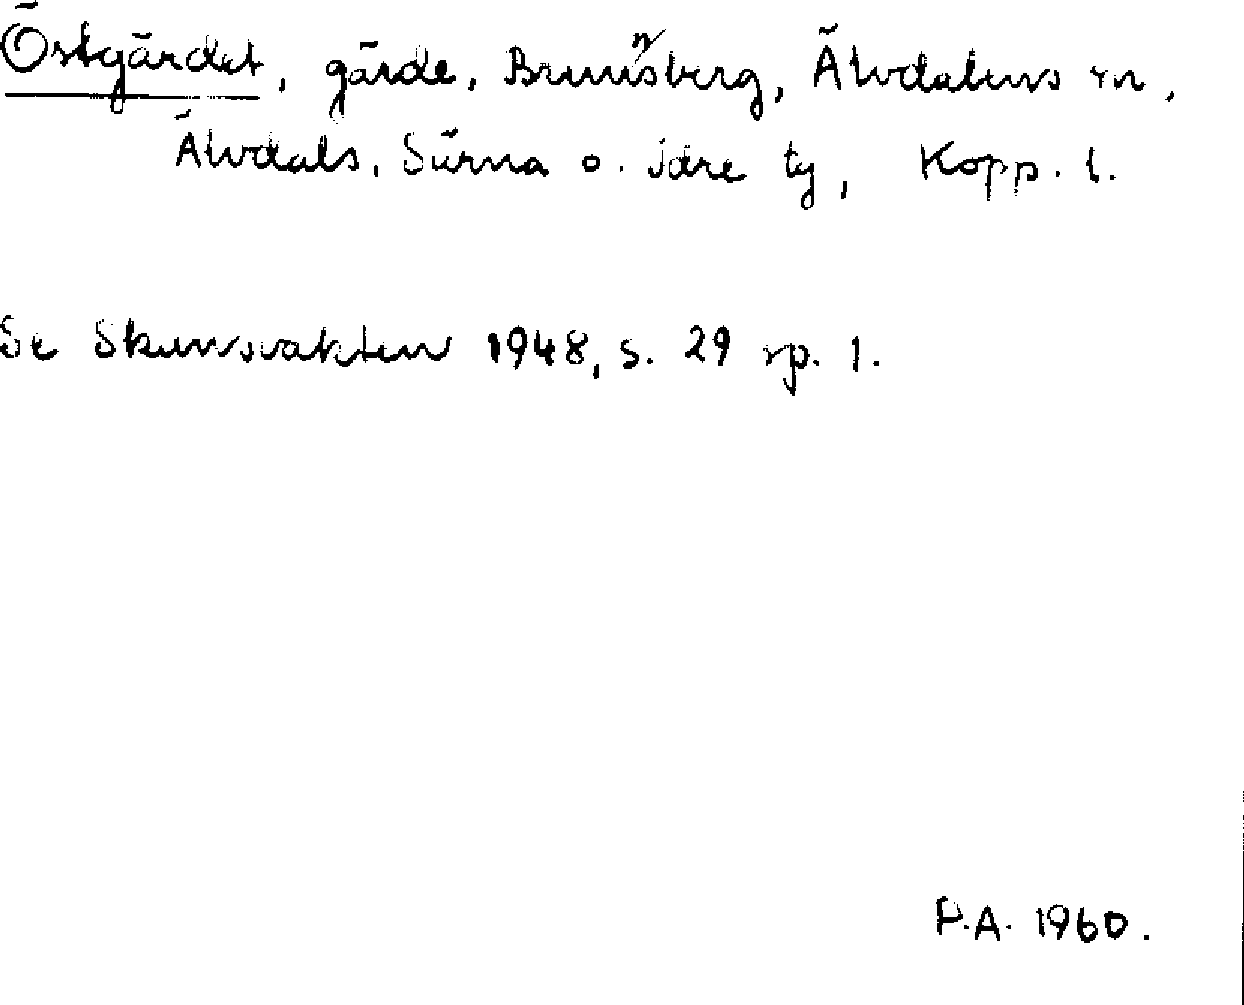 Östgärdet, gärde, Brunnsberg, Älvdalens sn,
Älvdals, Särna o. Idre tg, Kopp. l.
Se Skansvakten 1948, s. 29 sp. 1.
P.A. 1960.